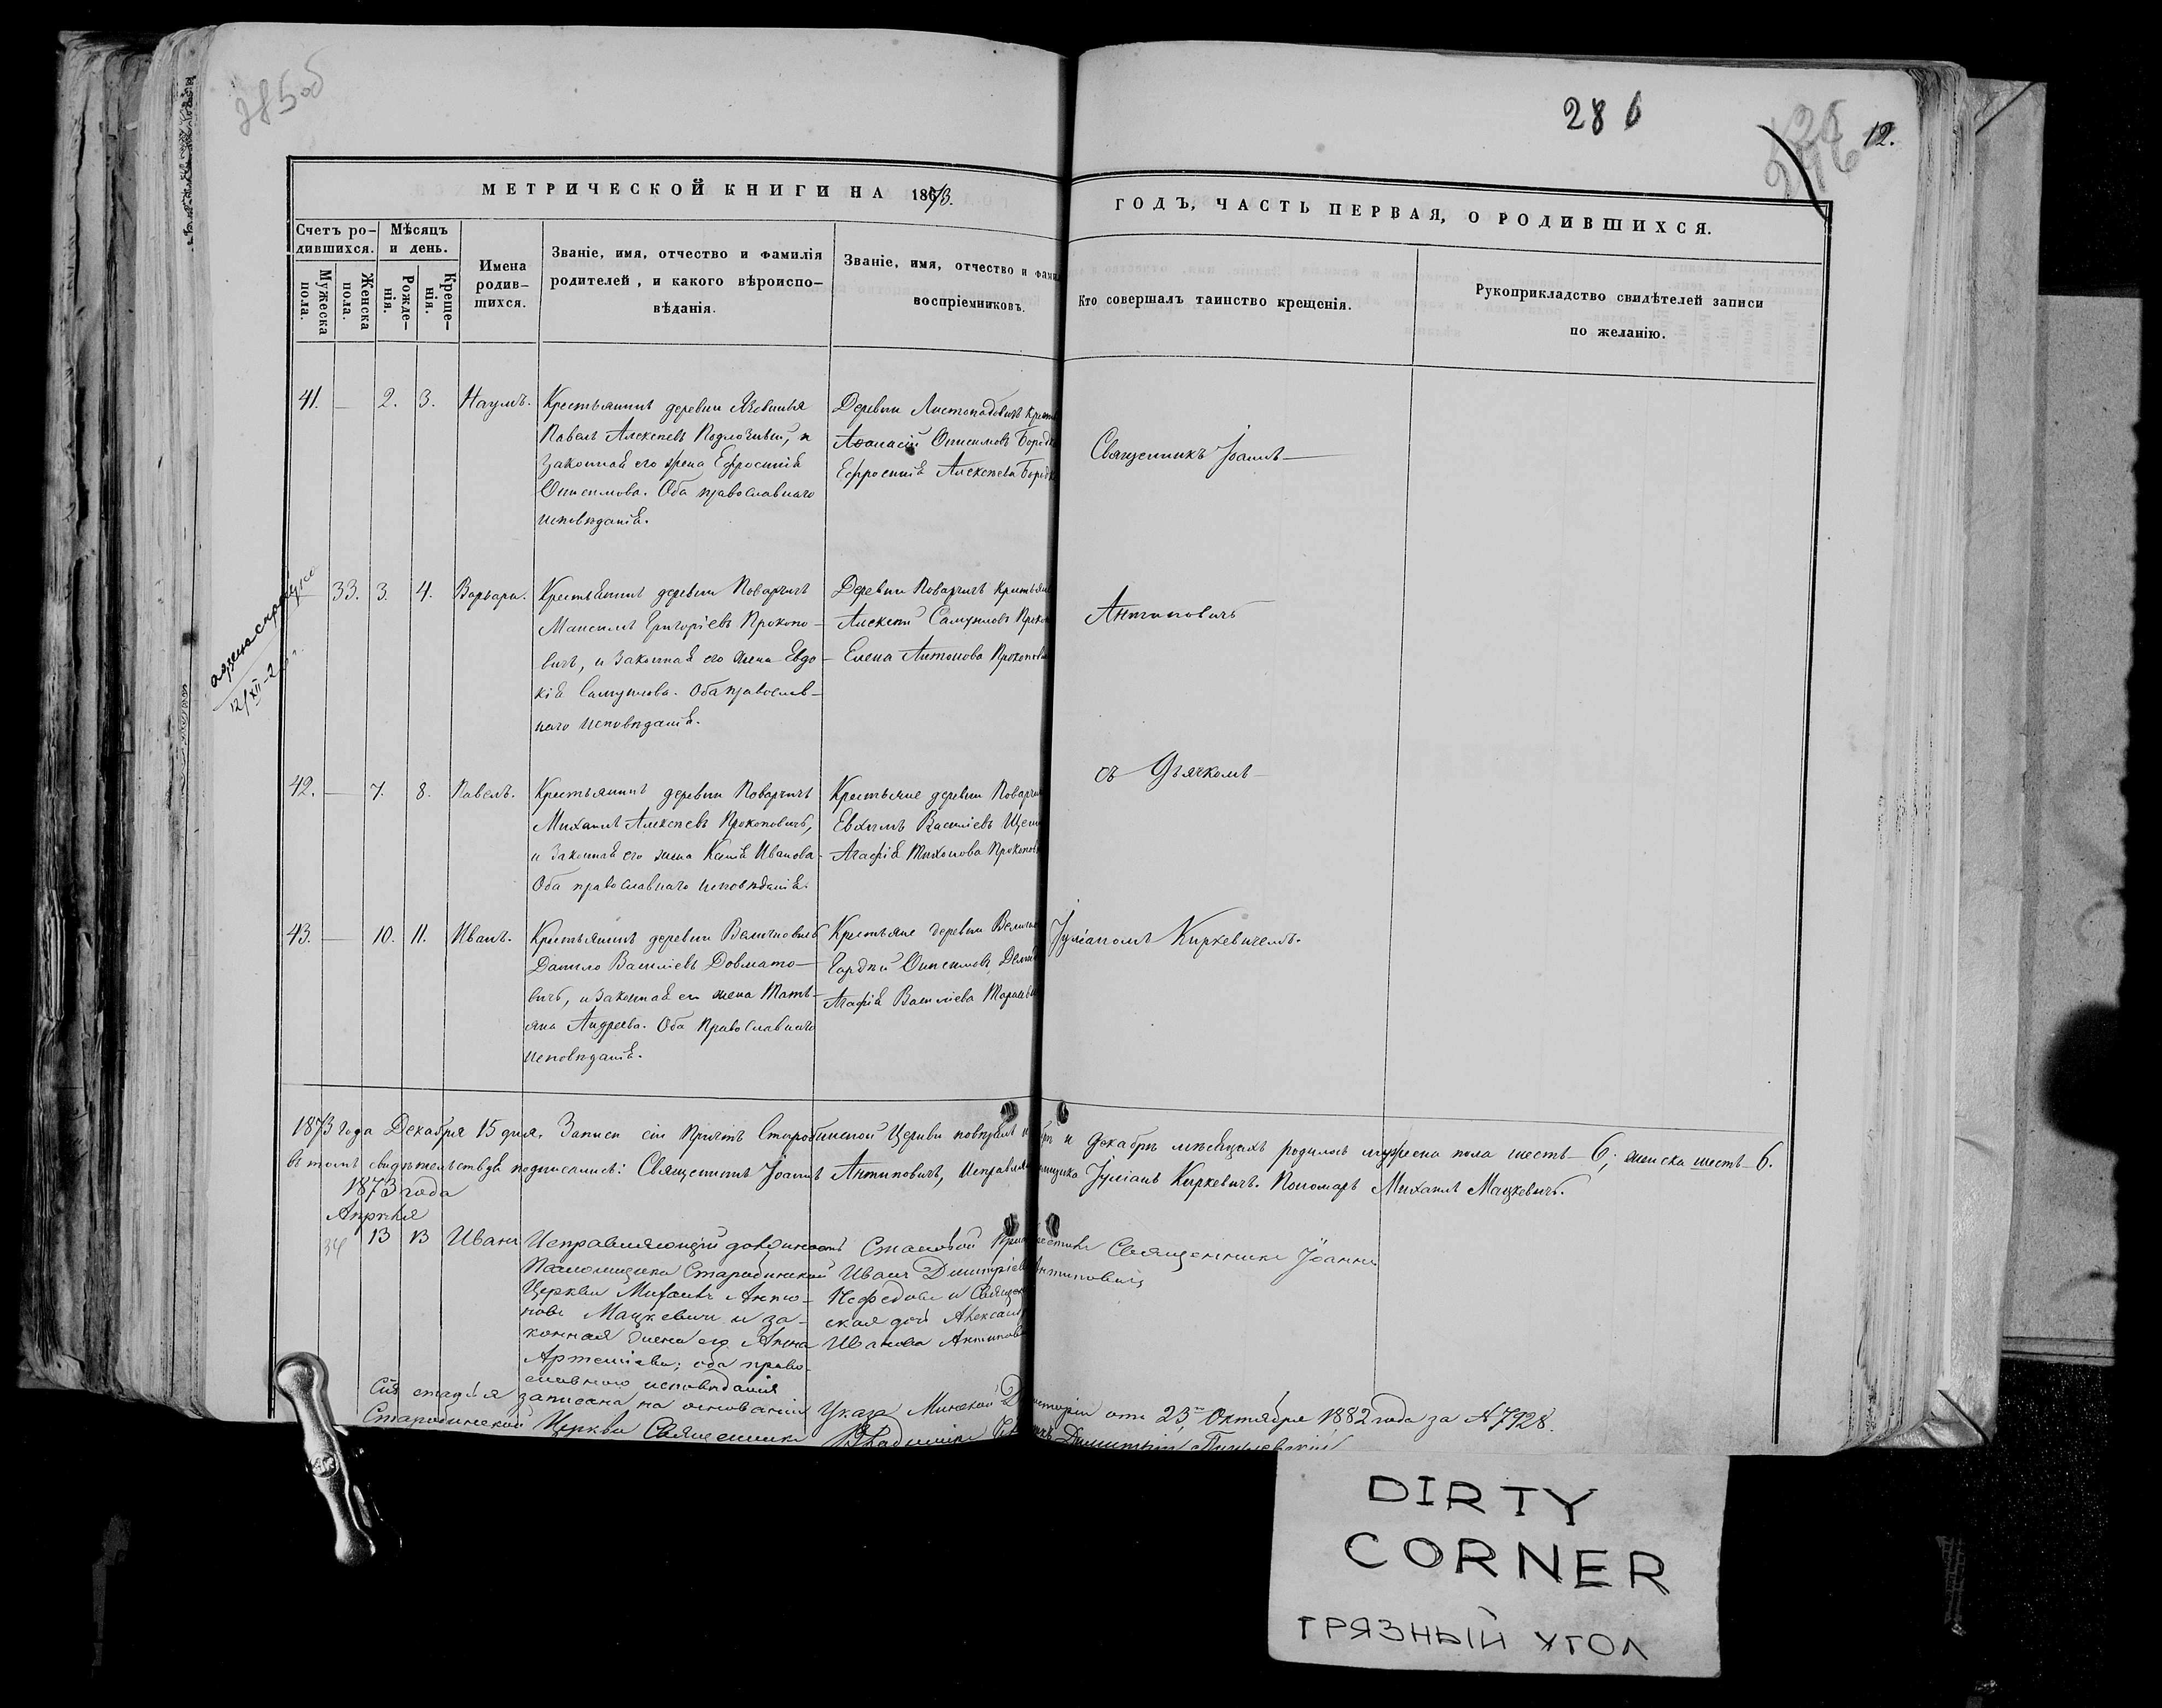 285об
286
12.
МЕТРИЧЕСКОЙ КНИГИ НА 1873.
ГОДЪ, ЧАСТЬ ПЕРВАЯ, О РОДИВШИХСЯ.
Счетъ ро-
дившихся.
Мужеска пола.
Женска пола.
Мѣсяцъ
и день.
Рожде-
нія.
Креще-
нія.
Имена
родив-
шихся.
Званіе, имя, отчество и фамилія
родителей, и какого вѣроиспо-
вѣданія.
Званіе, имя, отчество и
воспріемниковъ.
Кто совершалъ таинство крещенія.
Рукоприкладство свидѣтелей записи
по желанію.
41. — 2. 3. Наумъ.
Крестьянинъ деревни
Павелъ Алексѣевъ и
законная его жена Ефросинія
Онисимова. Оба православнаго
исповѣданія.
Деревни Листопадовичъ
Аѳанасій Онисимовъ
Ефросинія Алексѣева
Священникъ Іоаннъ
— 33. 3. 4. Варвара.
Крестьянинъ деревни Поварчичъ
Максимъ Григоріевъ Прокопо-
вичъ, и законная его жена Евдо-
кія Самуилова. Оба православ-
наго исповѣданія.
Деревни Поварчичъ
Алексѣй Самуиловъ
Елена Антонова
Антиповичъ
12/XII-2
42. — 7. 8. Павелъ.
Крестьянинъ деревни Поварчичъ
Михаилъ Алексѣевъ Прокоповичъ,
и законная его жена Ксенія Иванова.
Оба православнаго исповѣданія.
Крестьяне деревни
Евхимъ Василіевъ
Агафія Тихонова
съ Дьячкомъ
43. — 10. 11. Иванъ.
Крестьянинъ деревни Величковичъ
Данило Василіевъ Довмато-
вичъ, и законная его жена Тать-
яна Андреева. Оба православнаго
исповѣданія.
Крестьяне деревни
Гордѣй Онисимовъ
Агафія Василіева
Іуліаномъ Киркевичемъ.
1873 года Декабря 15 дня. Записи сіи Причтъ Старобинской Церкви повѣрялъ и декабрѣ мѣсяцахъ родилось мужеска пола шесть – 6; женска шесть – 6.
въ томъ свидѣтельствуя подписались: Священникъ Іоаннъ Антиповичъ, Іуліанъ Киркевичъ. Пономарь Михаилъ Мацкевичъ.
1873 года
Апрѣля
34 13 13 Иванъ
Исправляющій должность
Псаломщика Старобинской
Церкви Михаилъ Анто-
новъ Мацкевичъ и за-
конная жена его Анна
Артеміева; оба право-
славнаго исповѣданія
Становой
Иванъ Димитріевъ
Нефедовъ и
ская дочь
Иванова
Священникъ Іоаннъ
Антиповичъ
Сія статья записана на основаніи Указа Минской отъ 23го Октября 1882 года за №7928.
Старобинской Церкви Священникъ Димитрій
DIRTY
CORNER
ГРЯЗНЫЙ УГОЛ